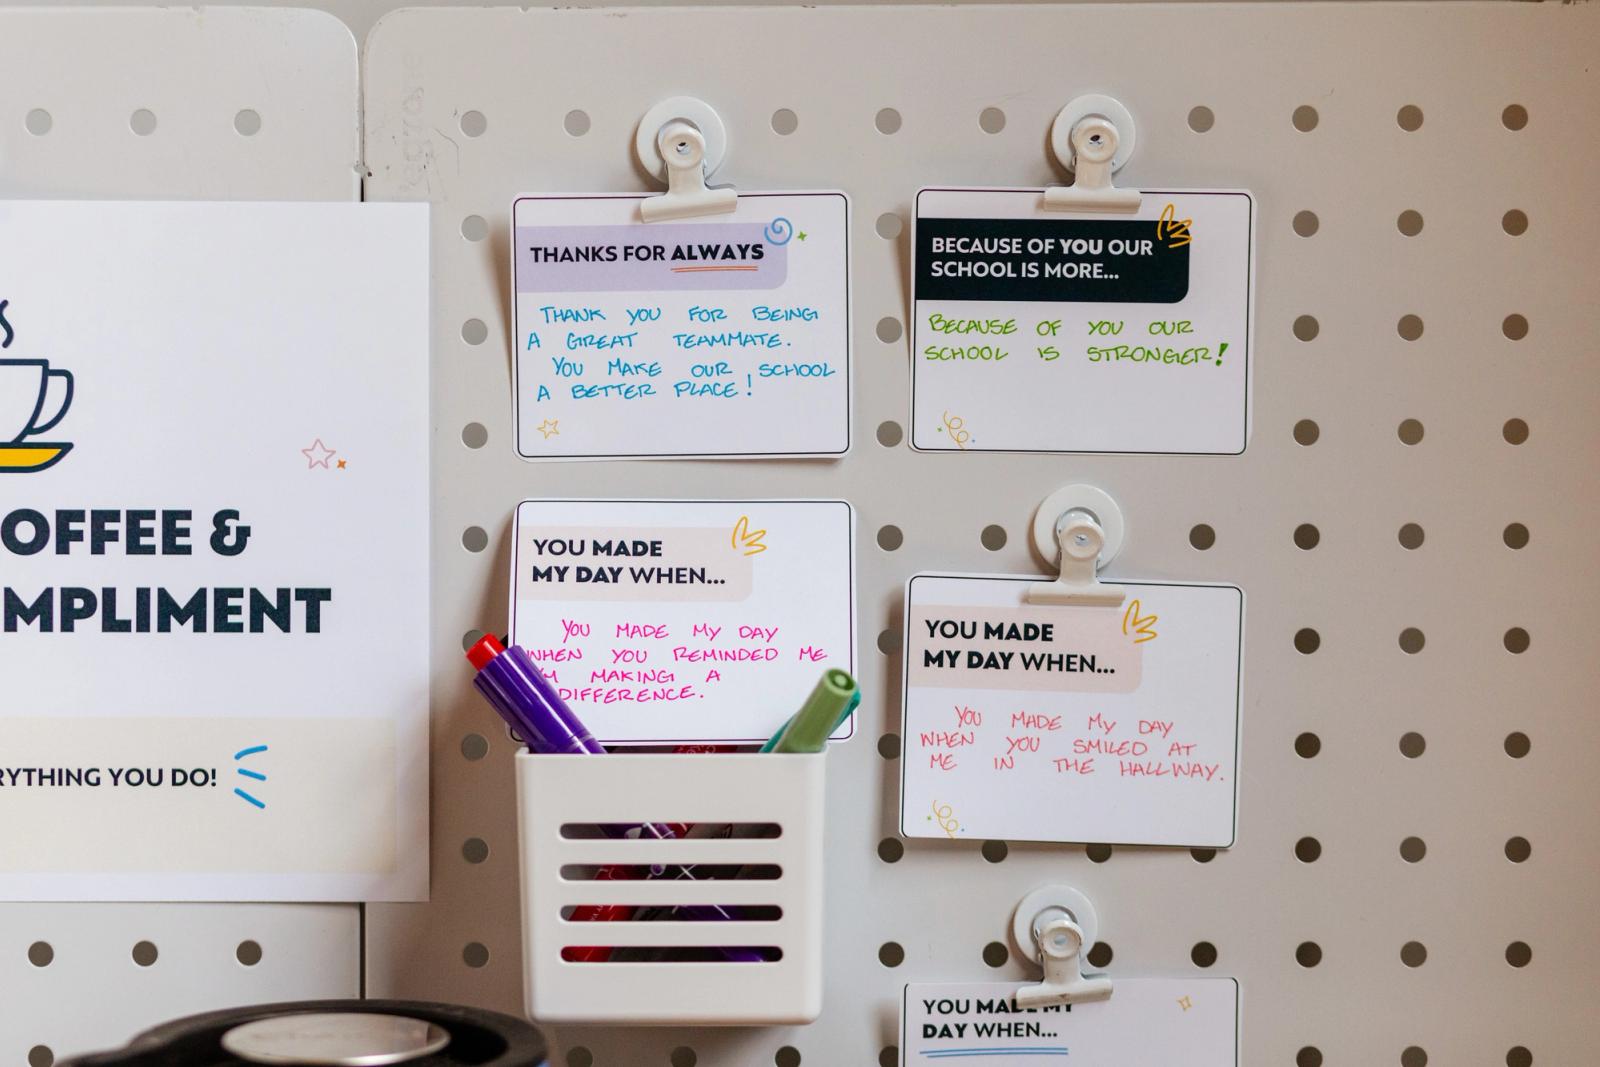 OFFEE &
MPLIMENT
RYTHING YOU DO!
THANKS FOR ALWAYS
THANK YOU FOR BEING
A GREAT TEAMMATE.
YOU MAKE OUR SCHOOL
A BETTER PLACE!
BECAUSE OF YOU OUR
SCHOOL IS MORE...
BECAUSE OF YOU OUR
SCHOOL IS STRONGER!
YOU MADE
MY DAY WHEN...
YOU MADE MY DAY
WHEN YOU REMINDED ME
MAKING A
DIFFERENCE.
YOU MADE
MY DAY WHEN...
YOU MADE MY DAY
WHEN YOU SMILED AT
ME IN THE HALLWAY.
YOU MADE MY
DAY WHEN...